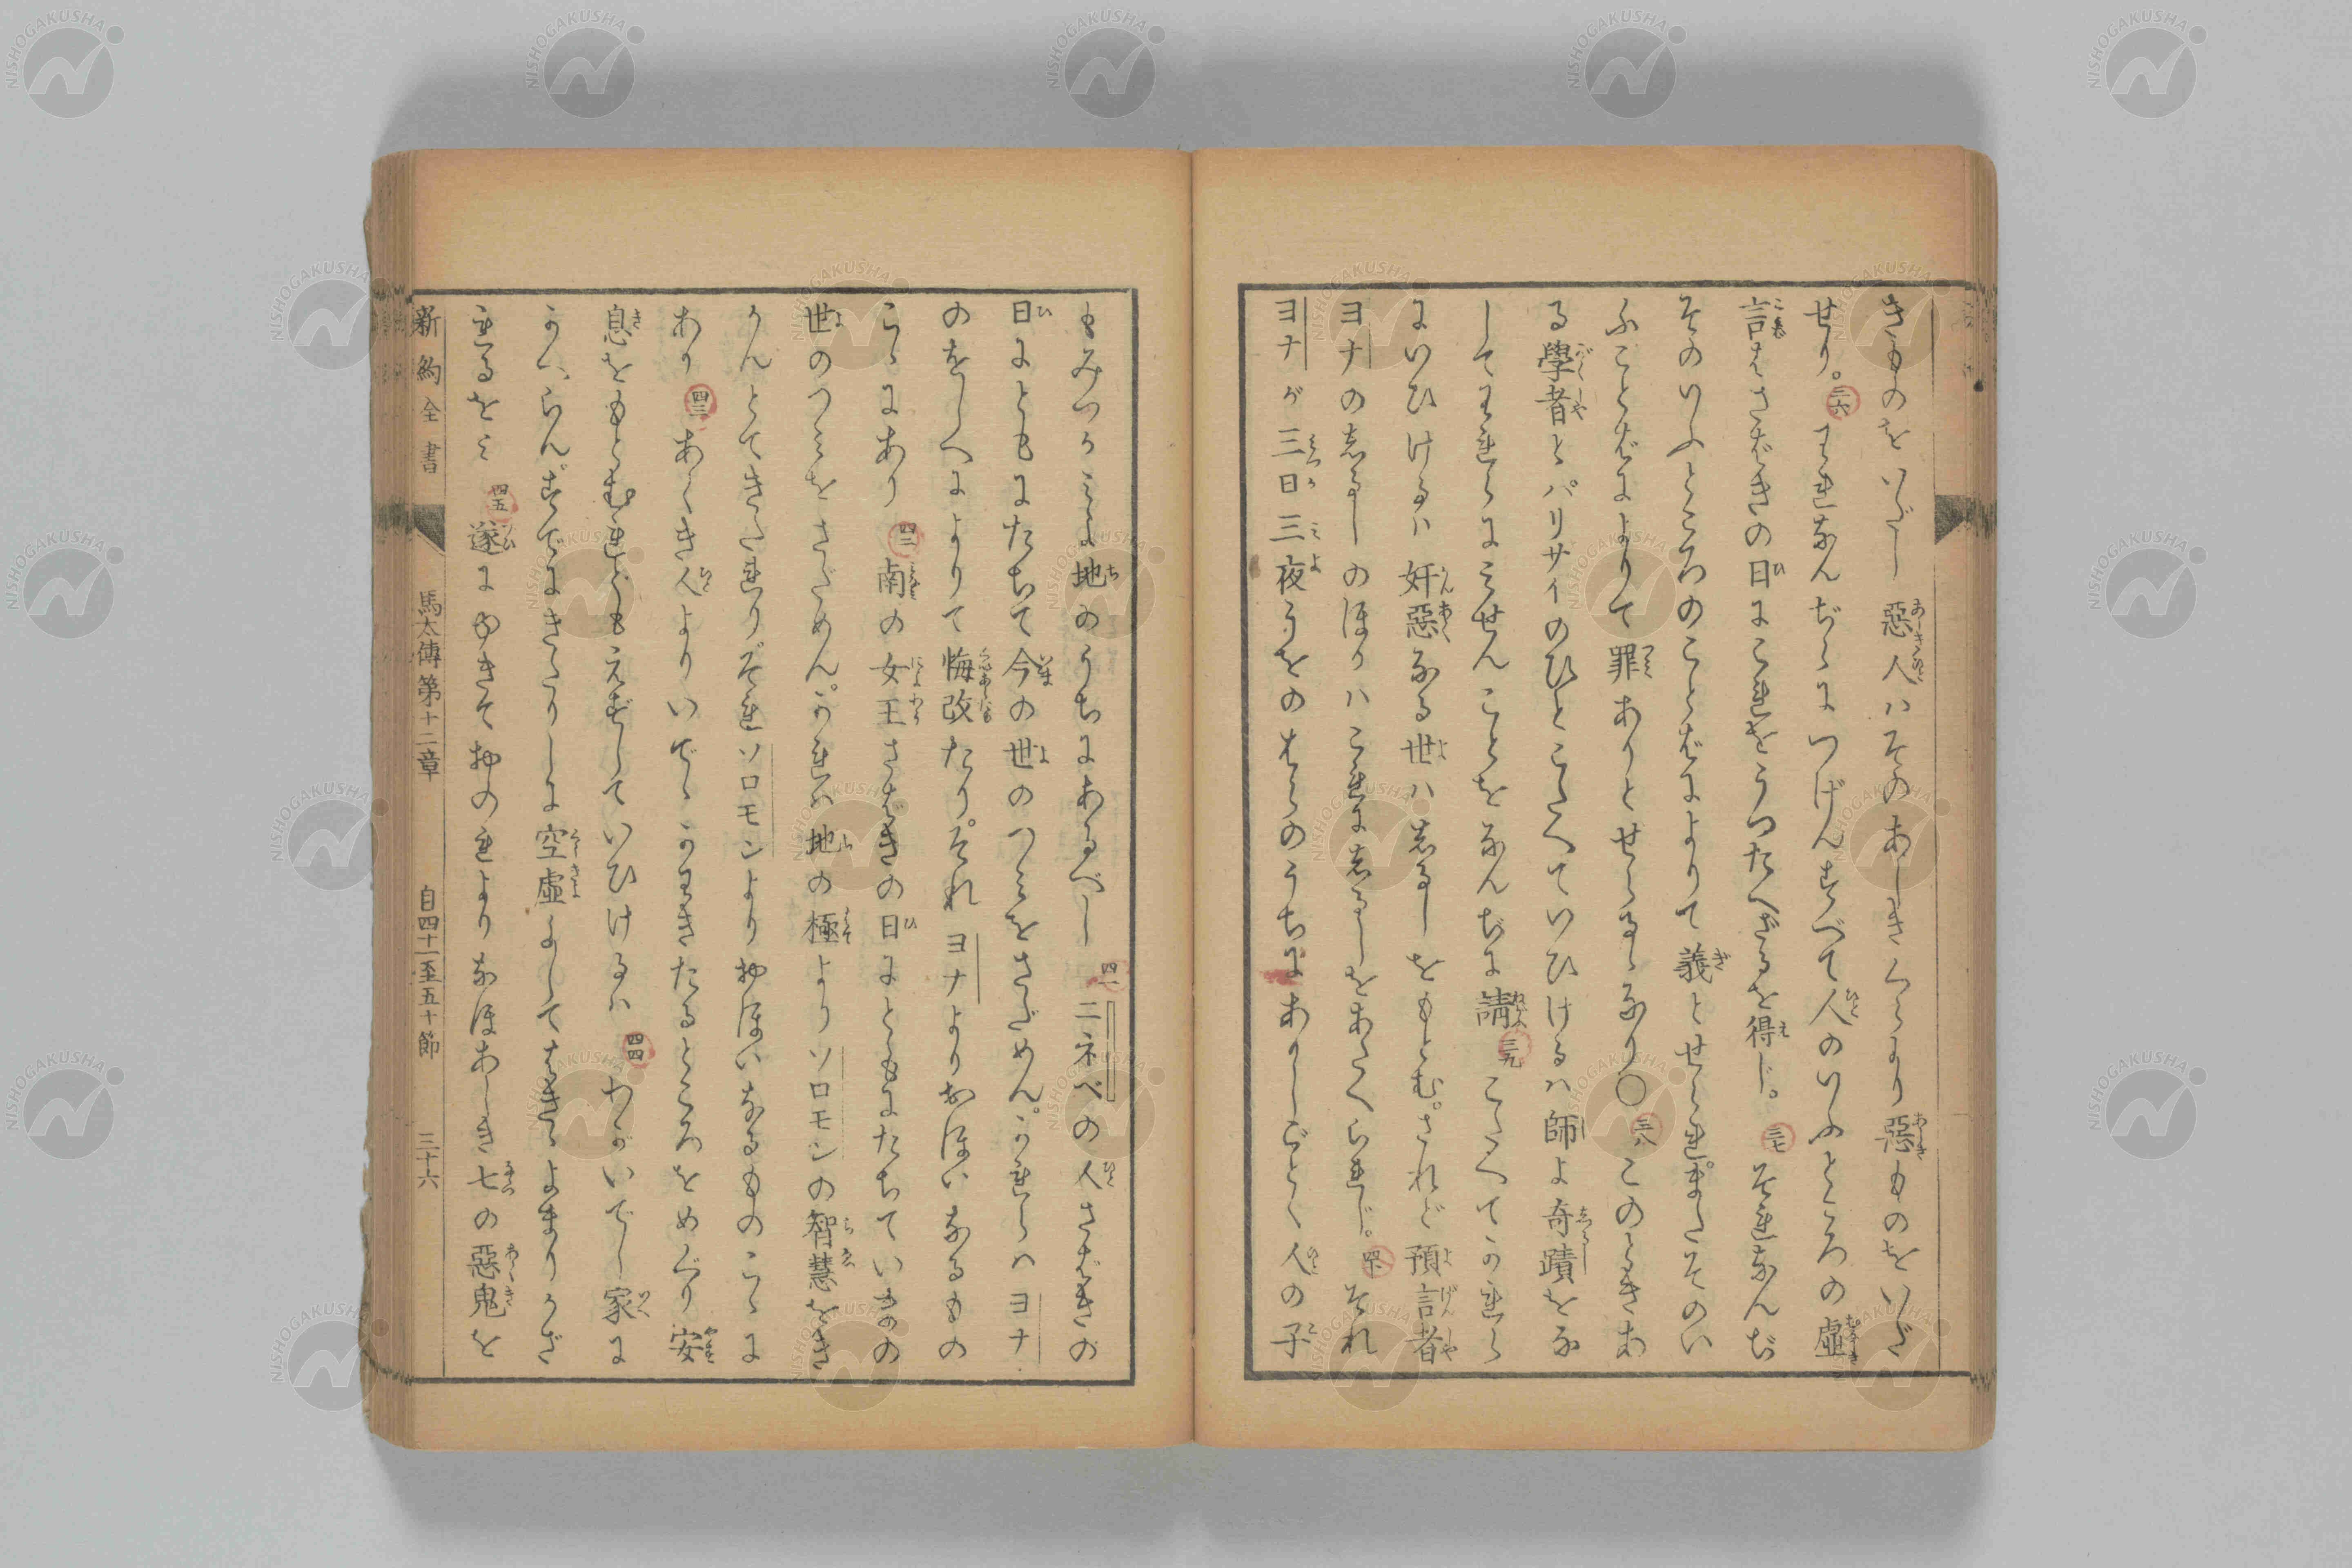 きものをいだし惡人ハそのあしきくらより惡ものをいだ
せり。三六われなんぢらにつげんすべて人のいふところの虛
言はさばきの日にこれをうつたへざるを得じ。三七それなんぢ
そのいふところのことばによりて義とせられまたそのい
ふことばによりて罪ありとせらるゝなり〇三八このときあ
る學者とパリサイのひとこたへていひけるハ師よ奇蹟をな
してわれらにみせんことをなんぢに請三九こたへてかれら
にいひけるハ奸惡なる世ハしるしをもとむ。されど預言者
ヨナのしるしのほかハこれにしるしをあたへられじ。四十それ
ヨナが三日三夜うをのはらのうちにありしごとく人の子
もみつかみよ地のうちにあるべし四一ニネベの人さばきの
日にともにたちて今の世のつみをさだめん。かれらハヨナ
のをしへによりて悔改たり。それヨナよりおほいなるもの
こゝにあり四二南の女王さばきの日にともにたちていまの
世のつみをさだめん。かれハ地の極よりソロモンの智慧をき
かんとてきたれりそれソロモンよりおほいなるものこゝに
あり四三あくき人よりいでゝかわきたるところをめぐり安
息をもとむれどもえずしていひけるハ四四わがいでし家に
かへらん。すでにきたりしに空虛よしてはききよまりかざ
れるをみ四五遂にゆきておのれよりなほあしき七の惡鬼を
新約全書
馬太傳第十二章
自四十一至五十節
三十六
NISHOGAKUSHA